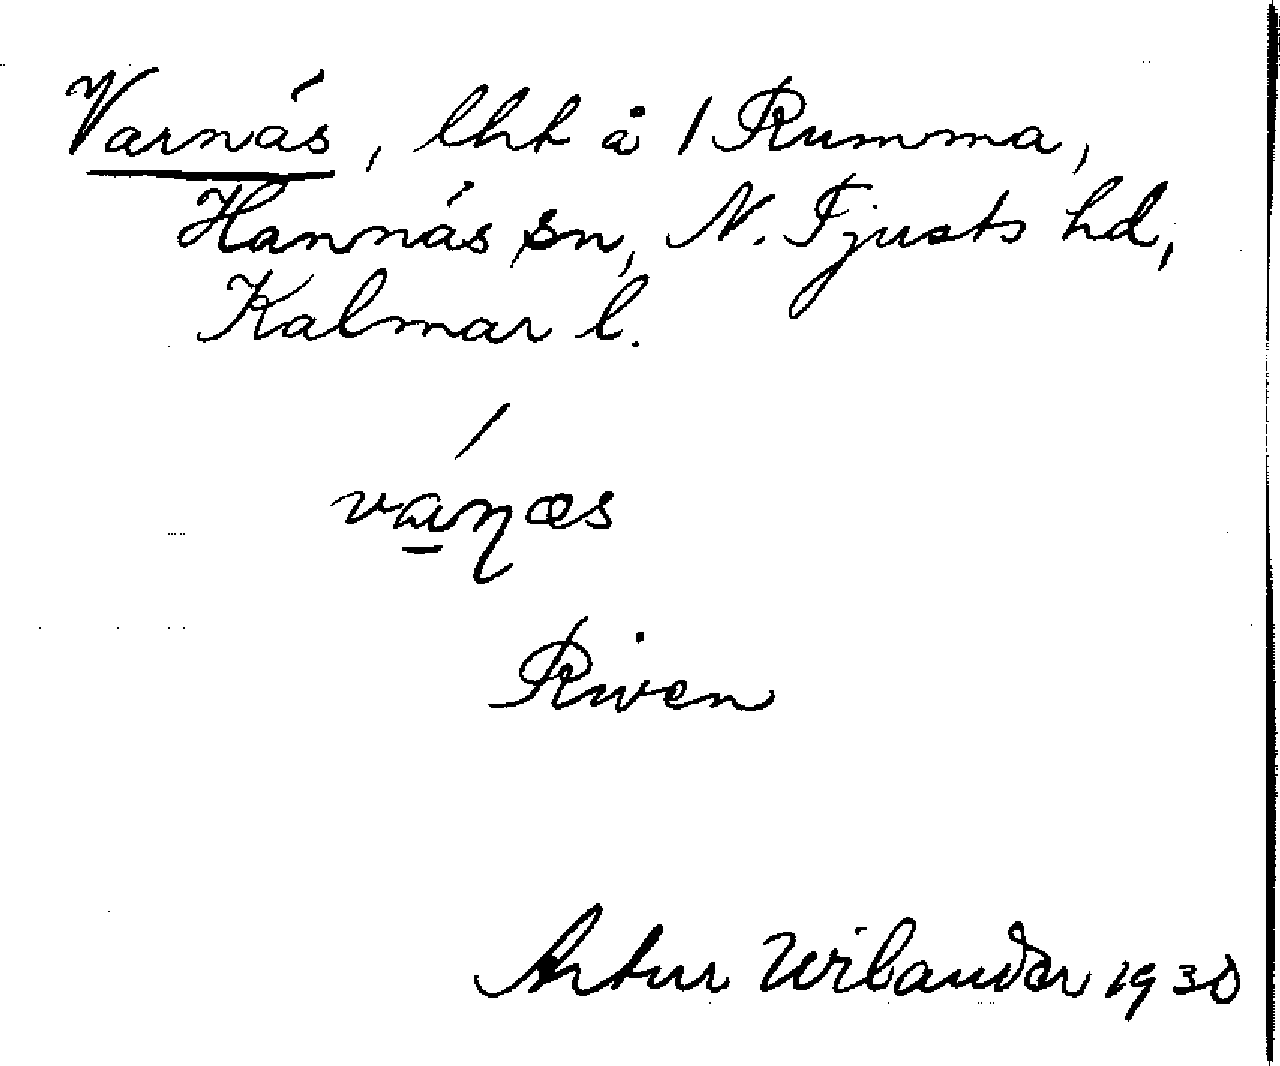 Varnäs, lht å 1 Rumma,
Hannäs sn, N. Tjusts hd,
Kalmar l.
Riven
Artur Wilander 1930